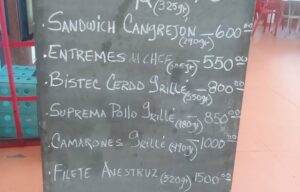 (325gr)
.SANDWICH CANGREJON (290gr) - 600.00
.ENTREMES M CHEF - 550.00
.BISTEC CERDO GRILLE (350gr) - 800.00
SUPREMA POLLO GRILLÉ (180gr) 850.00
.CAMARONES GRILLÉ (190gr) 1000.00
.FILETE AVESTRUZ (320gr) 1500.00